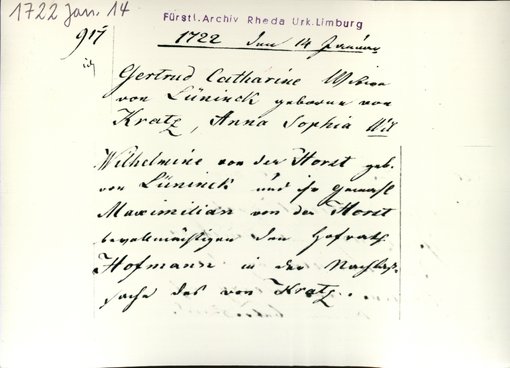 1722 Jan. 14
Fürstl. Archiv Rheda Urk. Limburg
917
1722 den 14 Januar
Gertrud Catharine Witwe
von Lüninck geborene von
Kratz, Anna Sophia
Wilhelmine von der Horst geb.
von Lüninck und ihr Gemahl
Maximilian von der Horst
bevollmächtigen den Hofrath
Hofmann in der Nachlaß-
sache des von Kratz.